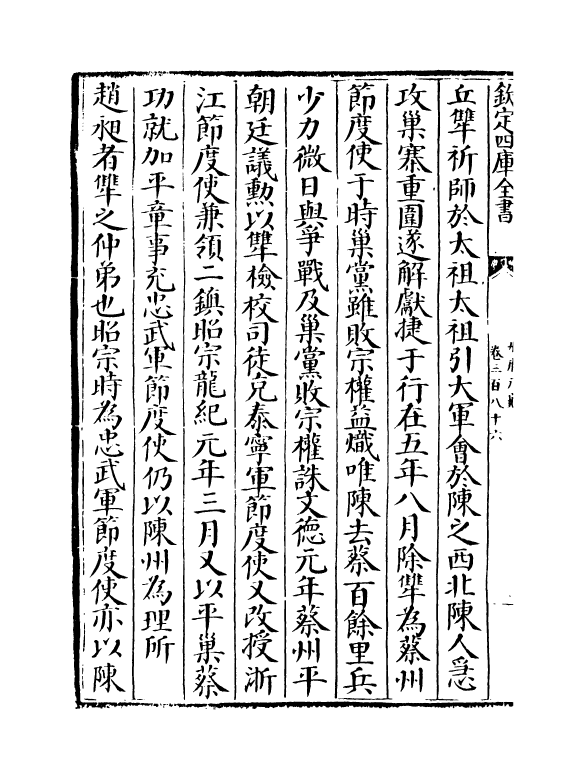 欽定四庫全書
卷三百八十六
丘犨祈師於太祖太祖引大軍會於陳之西北陳人急
攻巢寨重圍遂解獻捷于行在五年八月除犨為蔡州
節度使于時巢黨雖敗宗權益熾唯陳去蔡百餘里兵
少力微日與爭戰及巢黨敗宗權誅文德元年蔡州平
朝廷議勲以犨檢校司徒充泰寧軍節度使又改授浙
江節度使兼領二鎮昭宗龍紀元年三月又以平巢蔡
功就加平章事充忠武軍節度使仍以陳州為理所
趙昶者犨之仲弟也昭宗時為忠武軍節度使亦以陳